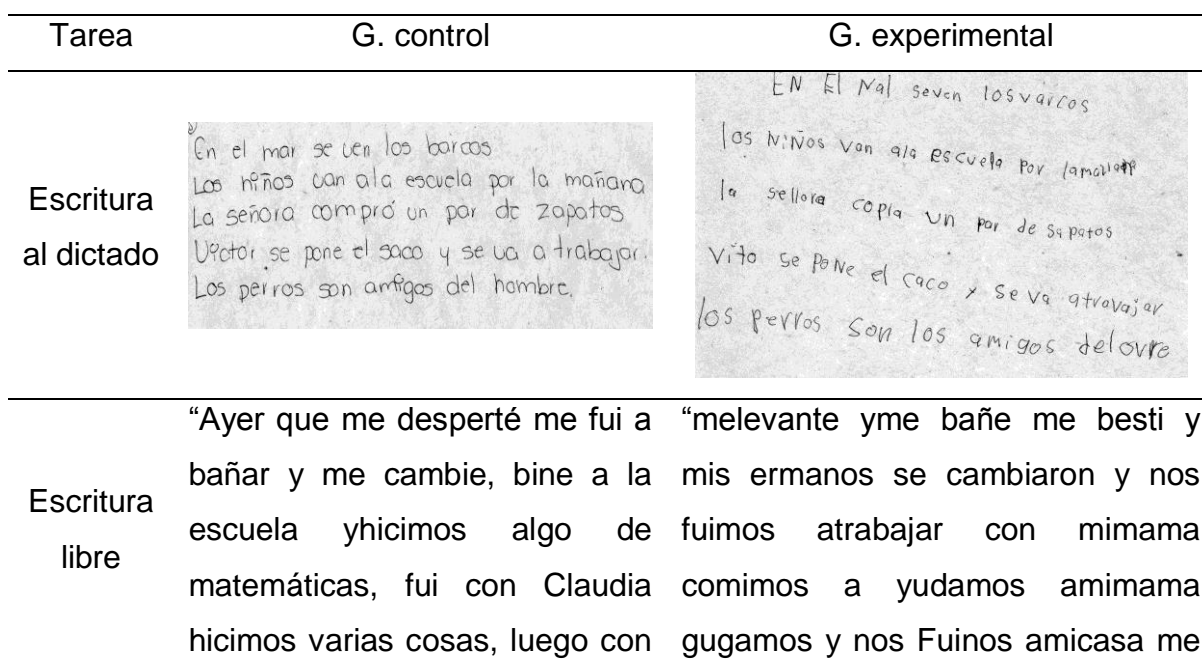 Tarea G. control G. experimental
Escritura al dictado
En el mar se ven los barcos
Los niños van ala escuela por la mañana
La señora compró un par de zapatos
Víctor se pone el saco y se va a trabajar.
Los perros son amigos del hombre.
EN El Nal seven losvarcos
los NiÑos van ala escuela por lamañana
la sellora copla un par de sapatos
vito se poNe el caco y se va atravajar
los perros son los amigos delovre
Escritura libre
“Ayer que me desperté me fui a
bañar y me cambie, bine a la
escuela yhicimos algo de
matemáticas, fui con Claudia
hicimos varias cosas, luego con
“melevante yme bañe me besti y
mis ermanos se cambiaron y nos
fuimos atrabajar con mimama
comimos a yudamos amimama
gugamos y nos Fuinos amicasa me